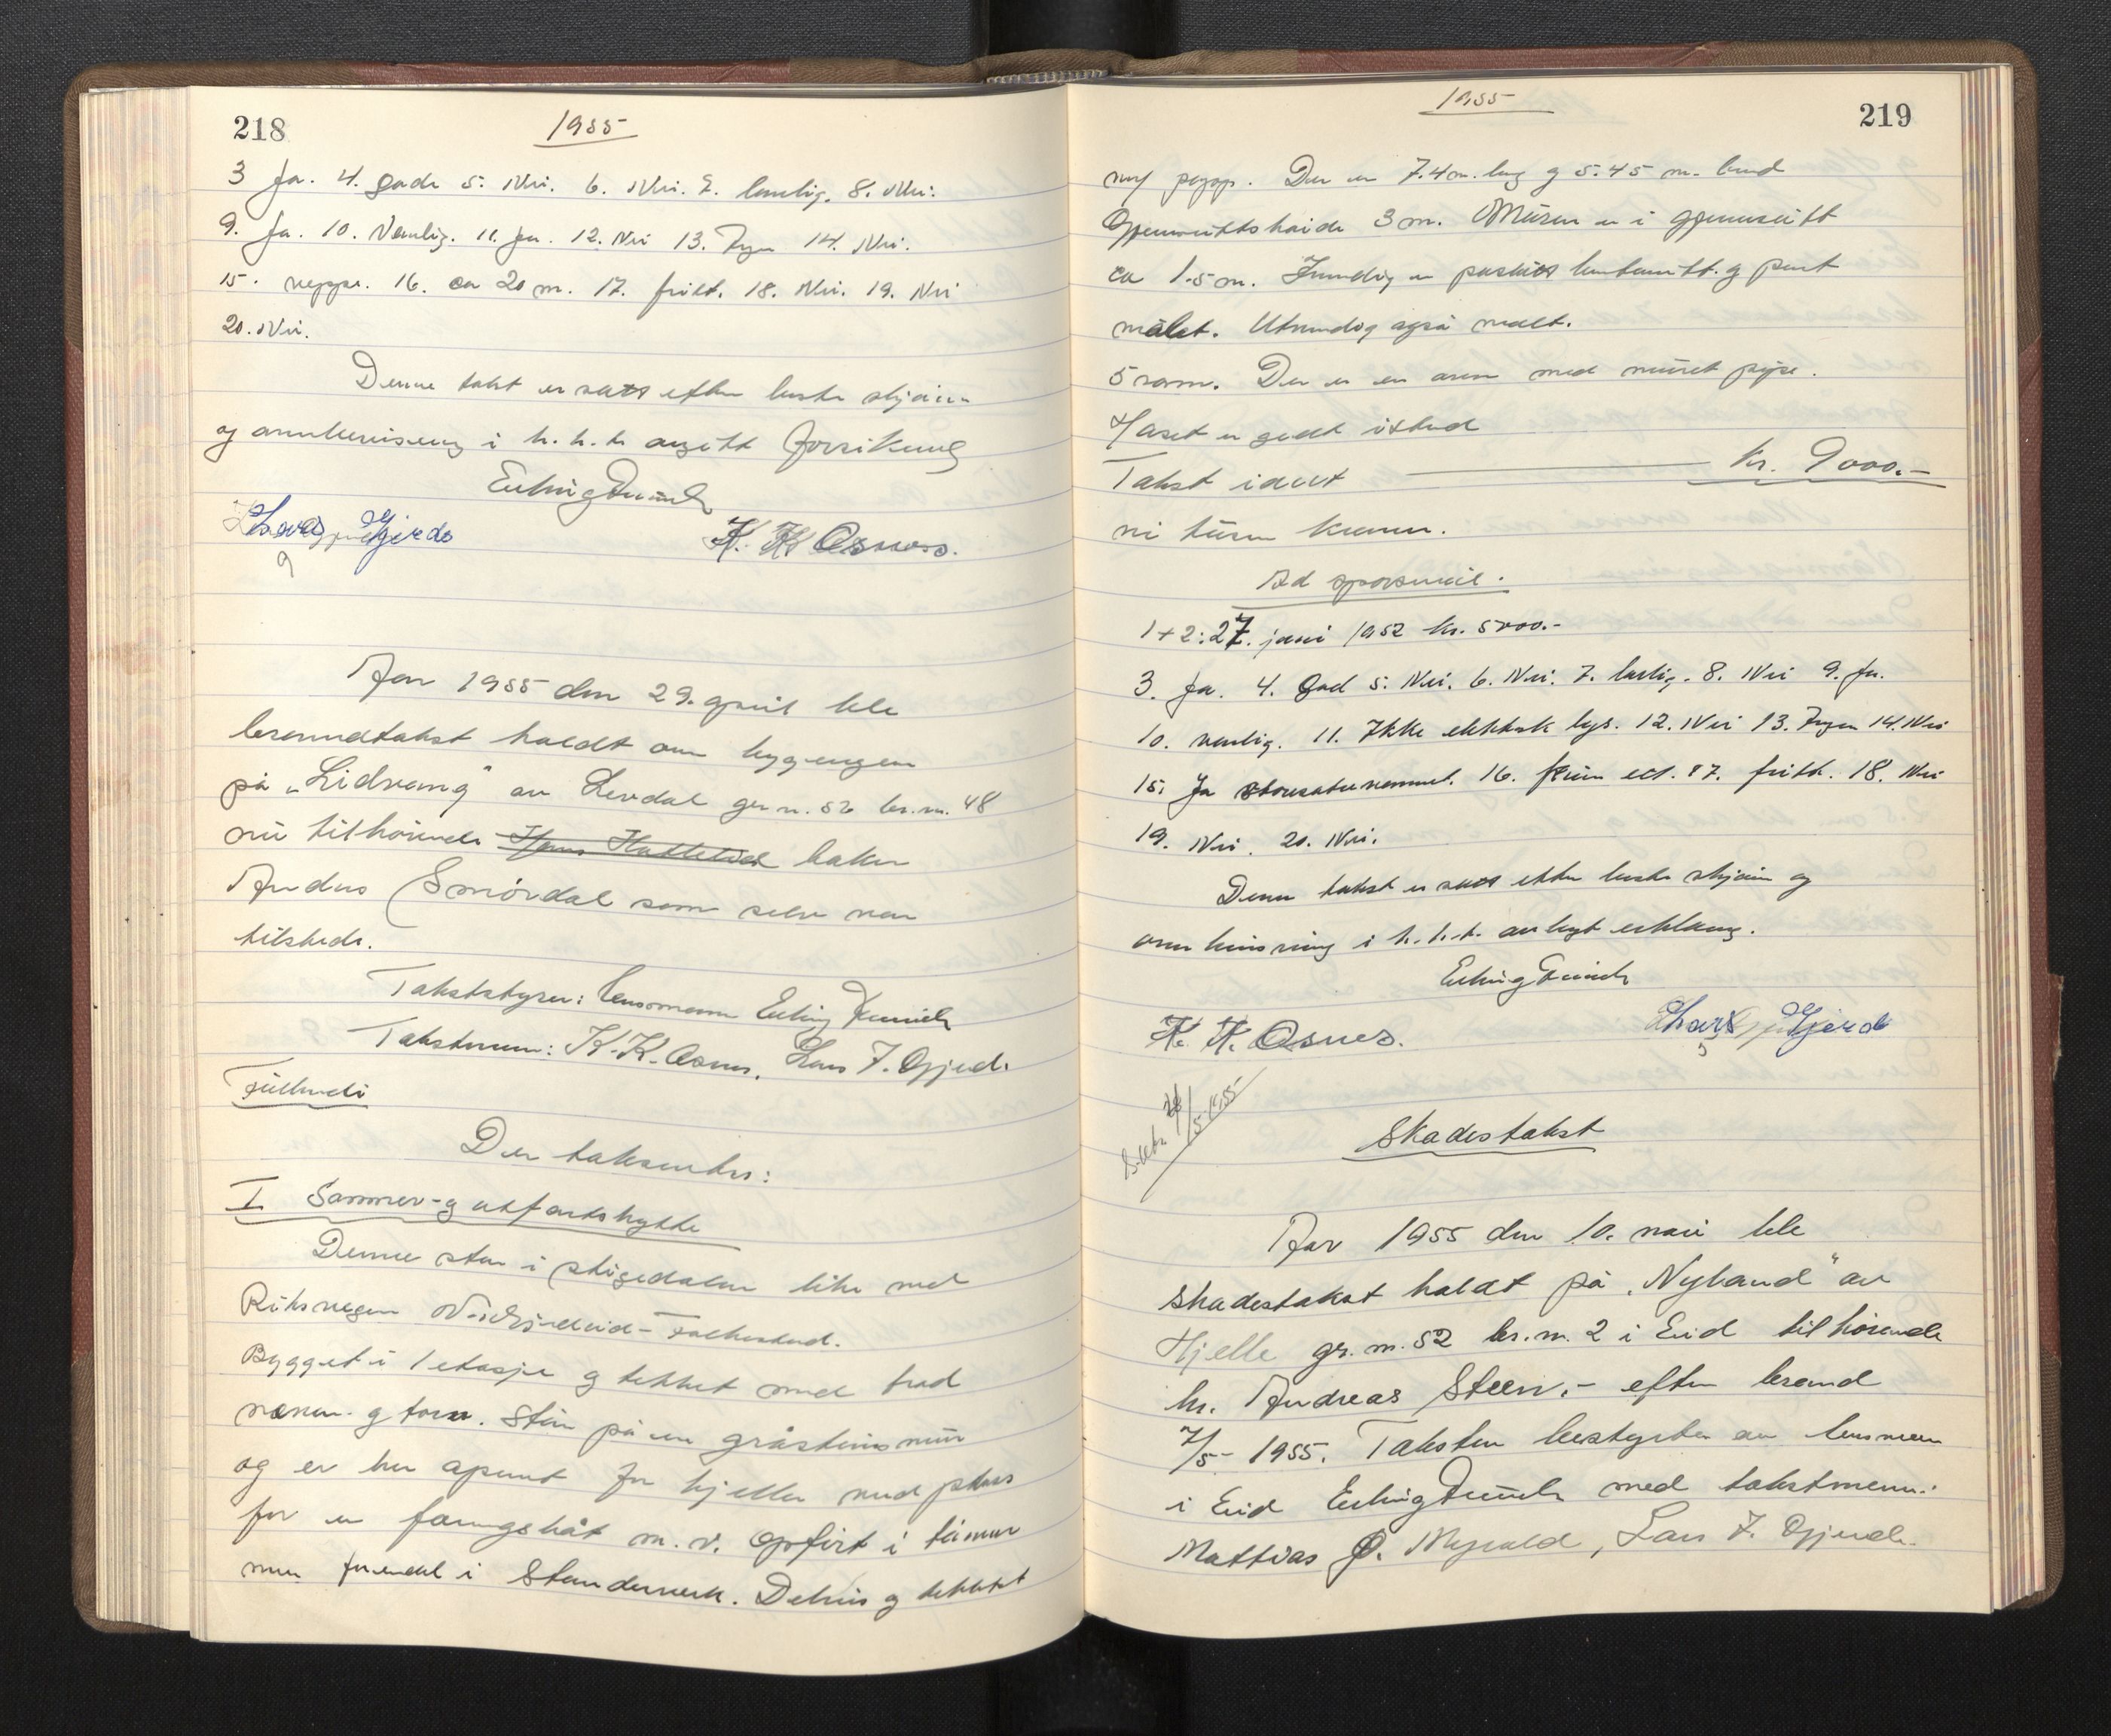 218
1955
3 Ja. 4. gode 5. Nei. 6. Nei. 7. lovlig. 8. Nei.
9. Ja. 10. Vanlig. 11. Ja. 12. Nei 13. Ingen 14. Nei.
15. neppe. 16. ca 20 m. 17. fritt. 18. Nei. 19. Nei
20. Nei.
Denne takst er satt efter beste skjønn
og overbevisning i h. h. t. avgitt forsikring
Erling
Lars J. Gjerde
K. K. Osnes.
Aar 1955 den 29. april ble
branndtakst holdt over bygningen
på "Lidvang" av Levdal gr. n. 52 br. nr. 48
nu tilhørende baker
Anders Smørdal som selv var
tilstede.
Takststyrer: lensmann Erling
Takstmenn: K. K. Osnes, Lars J. Gjerde
Der takseres:
I Sommer- og utfartshytte
Denne står i stigedalen like ved
Riksvegen Nordfjordeid-Folkestad.
Bygget i 1 etasje og tekket med
never og torv. Står på en gråsteinsmur
og er her åpent for kjeller med plass
for en færingsbåt m. v. Opført i tømmer
men for en del i Stenderverk. Delvis og tekket
1955
219
med papp. Den er 7.4 m. lang og 5.45 m. bred
Gjennemsnittshøide 3 m. Muren er i gjennomsnitt
ca 1.5 m. Innvendig er og pent
målet. Utvendig også malt.
5 rom. Der er en aren med muret pipe.
Huset er godt istand
Takst idørt kr. 9000.-
ni tusen kroner.
Ad spørsmål.
1+2: 27. juni 1952 kr. 5000.-
3. Ja. 4. God 5. Nei. 6. Nei. 7. lovlig. 8. Nei 9. Ja.
10. vanlig. 11. Ikke elektrisk lys. 12. Nei 13. Ingen 14. Nei
15. Ja 16. 17. fritt. 18. Nei
19. Nei. 20. Nei.
Denne takst er satt etter beste skjønn og
overbevisning i h. h. t. avlagt erklæring.
Erling
K. K. Osnes.
Lars J. Gjerde
5-1955
Skadestakst
Aar 1955 den 10. mai ble
skadestakst holdt på "Nyland" av
Hjelle gr. nr. 52 br. nr. 2 i Eid tilhørende
hr. Andreas Steen. - efter brand
7/5- 1955. Taksten bestyrtes av lensmann
i Eid Erling med takstmenn:
Mattias O. Myrold, Lars J. Gjerde.